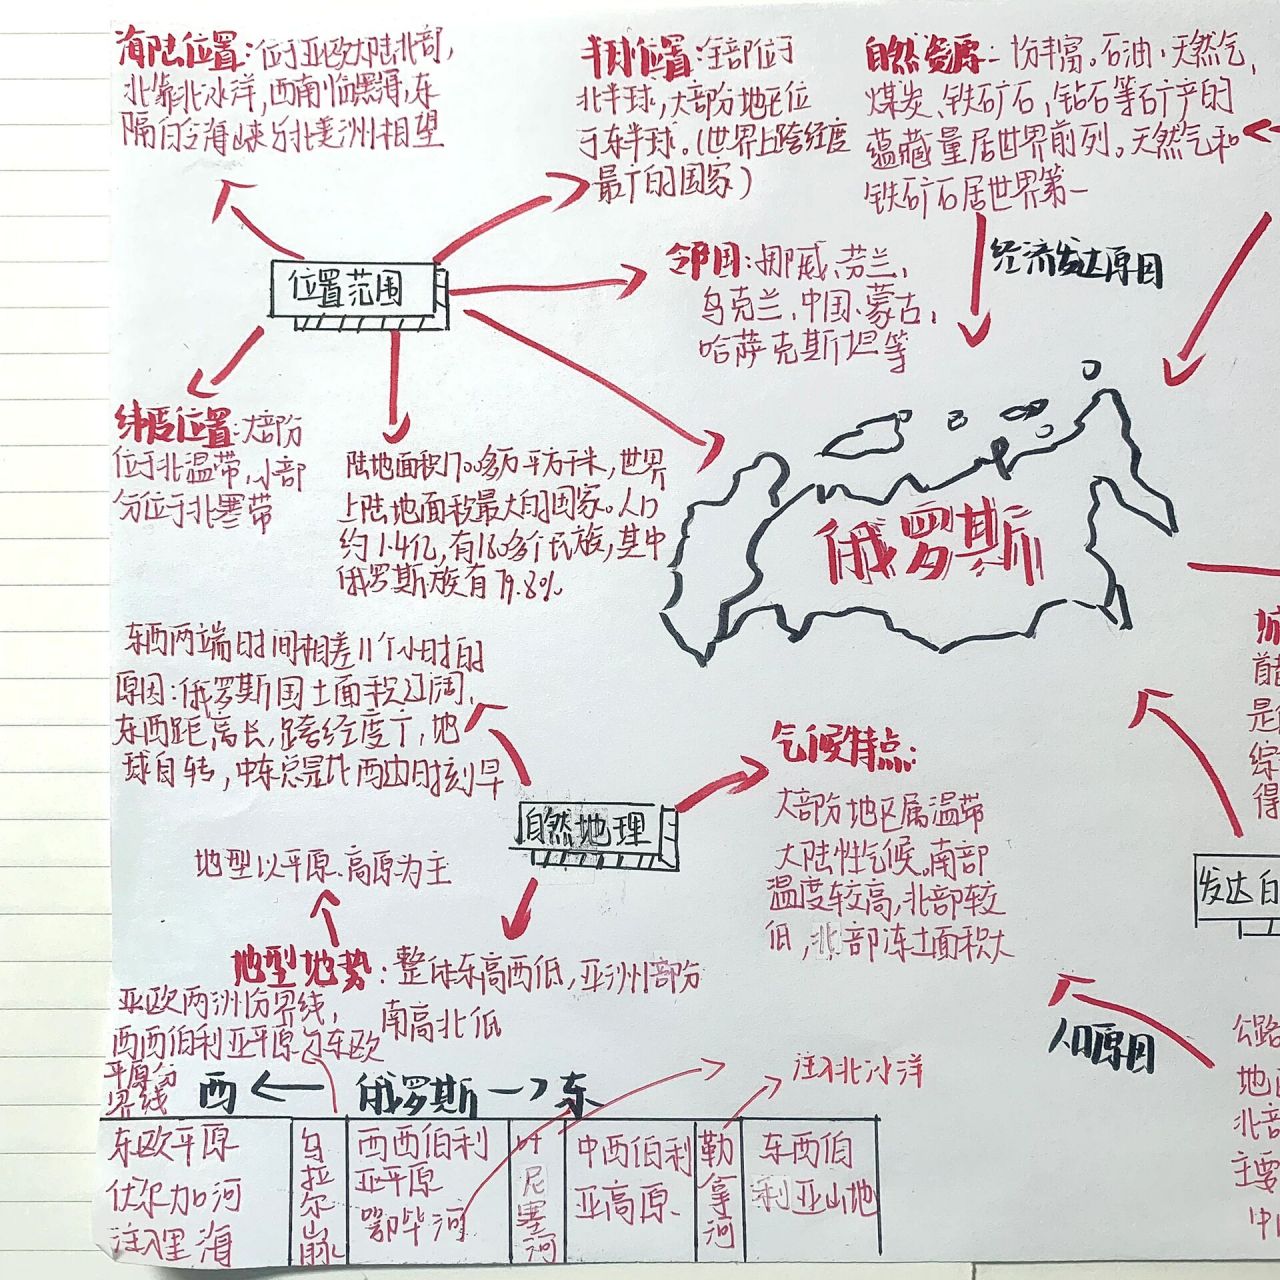 海陆位置:位于亚欧大陆北部,
北靠北冰洋,西南临黑海,东
隔白令海峡与北美洲相望
半球位置:全部位于
北半球,大部分地区位
于东半球。(世界上跨经度
最广的国家)
自然资源:丰富。石油、天然气,
煤炭、铁矿石、钻石等矿产的
蕴藏量居世界前列。天然气和
铁矿石居世界第一
经济发达原因
位置范围
邻国:挪威、芬兰、
乌克兰、中国、蒙古、
哈萨克斯坦等
纬度位置:大部分
位于北温带,小部
分位于北寒带
陆地面积1700多万平方千米,世界
上陆地面积最大的国家。人口
约1.4亿,有160多个民族,其中
俄罗斯族有79.8%
俄罗斯
东西两端时间相差11个小时的
原因:俄罗斯国土面积辽阔,
东西距离长,跨经度广,地
球自转,中东总是比西边时刻早
自然地理
气候特点:
大部分地区属温带
大陆性气候。南部
温度较高,北部较
低,北部冻土面积大
地型以平原、高原为主
地型地势:整体东高西低,亚洲部分
南高北低
亚欧两洲分界线,
西西伯利亚平原与东欧
平原分
界线
西 ← 俄罗斯 → 东
注入北冰洋
东欧平原
伏尔加河
注入里海
乌拉尔山脉
西西伯利
亚平原
鄂毕河
叶尼塞河
中西伯利
亚高原
勒拿河
东西伯
利亚山地
发达的
人口原因
首都
是
综
得
公路
地
北部
主要
中